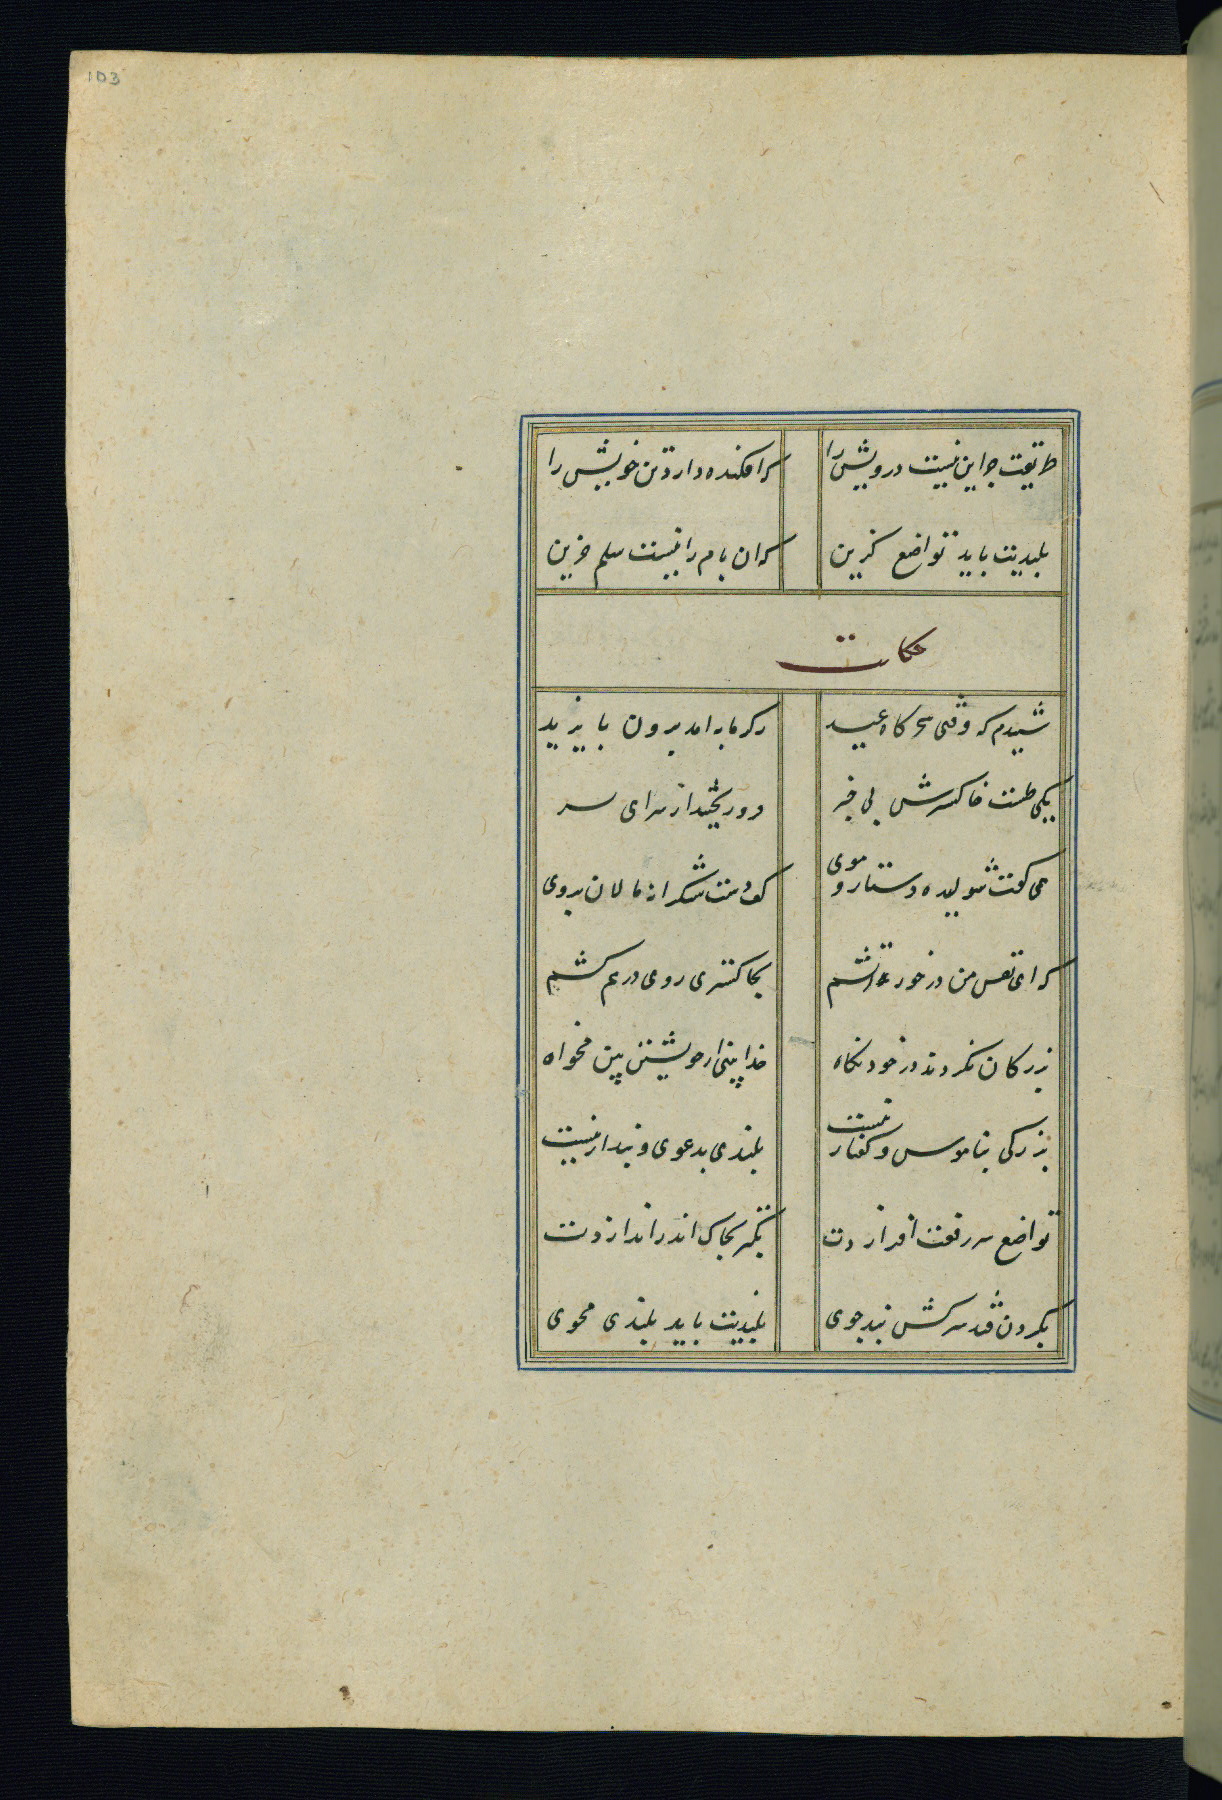 103
طریقت جز این نیست درویش را که افکنده دارد تن خویش را
بلندیت باید تواضع گزین که ان بام را نیست سلم جزین
حکایت
شنیدم که وقتی سحرگاه عید ز گرمابه امد برون بایزید
یکی طشت خاکسترش بی خبر فرو ریختند از سرای بسر
همی گفت شولیده دستار و موی کف دست شکرانه مالان بروی
که ای نفس من در خور اتشم بخاکستری روی درهم کشم
بزرگان نکردند در خود نگاه خدا بینی از خویشتن بین مخواه
بزرگی بناموس و گفتار نیست بلندی بدعوی و پندار نیست
تواضع سر رفعت افرازدت تکبر بخاک اندر اندازدت
بگردن فتد سرکش تندجوی بلندیت باید بلندی مجوی